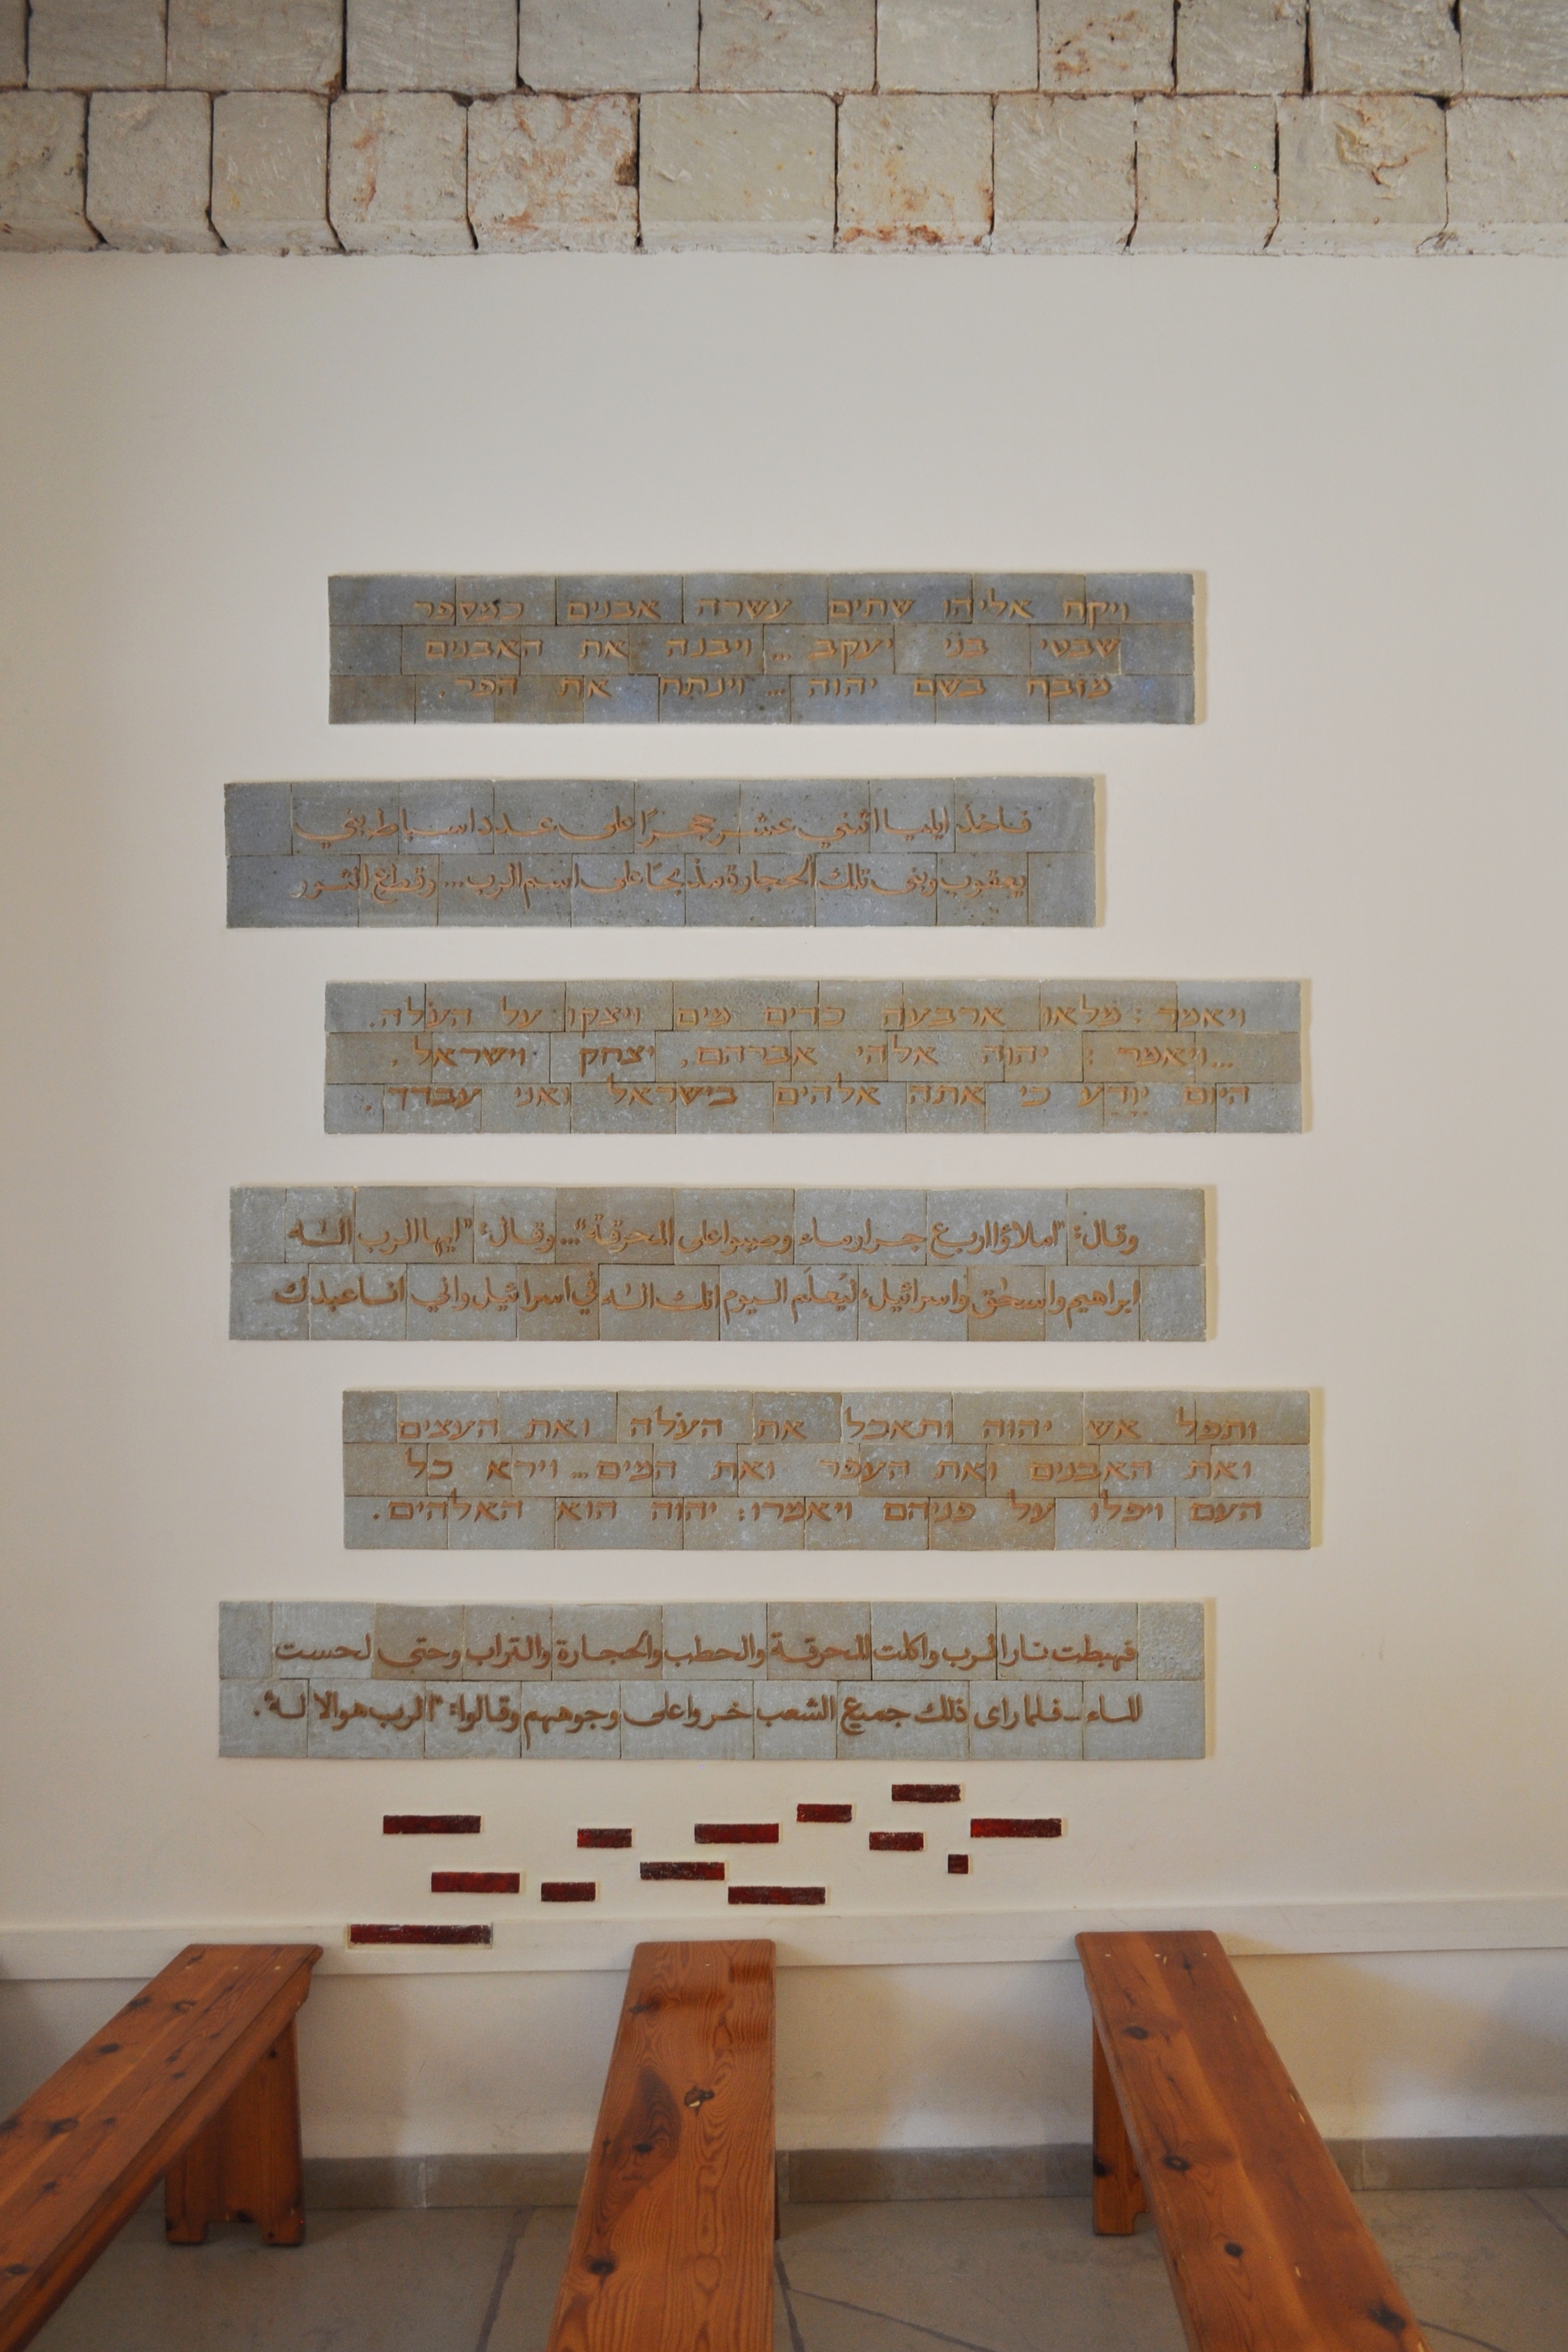 ויקח אליהו שתים עשרה אבנים כמספר
שבטי בני יעקב... ויבנה את האבנים
מזבח בשם יהוה... וינתח את הפר.
فاخذ ايليا اثني عشر حجرًا على عدد اسباط بني
يعقوب وبنى تلك الحجارة مذبحًا على اسم الرب... وقطع الثور
ויאמר: מלאו ארבעה כדים מים ויצקו על העֹלה.
...ויאמר: יהוה אלהי אברהם, יצחק וישראל,
היום יִוָּדַע כי אתה אלהים בישראל ואני עבדך.
وقال: "املاؤا اربع جرار ماء وصبوا على المحرقة"... وقال: "ايها الرب الٰه
ابراهيم واسحٰق واسرائيل، ليَعلَم اليوم انك الٰه في اسرائيل واني انا عبدك
ותפל אש יהוה ותאכל את העֹלה ואת העצים
ואת האבנים ואת העפר ואת המים... וירא כל
העם ויפלו על פניהם ויאמרו: יהוה הוא האלהים.
فهبطت نار الرب واكلت المحرقة والحطب والحجارة والتراب وحتى لحست
الماء - فلما راى ذلك جميع الشعب خروا على وجوههم وقالوا: "الرب هو الاله".